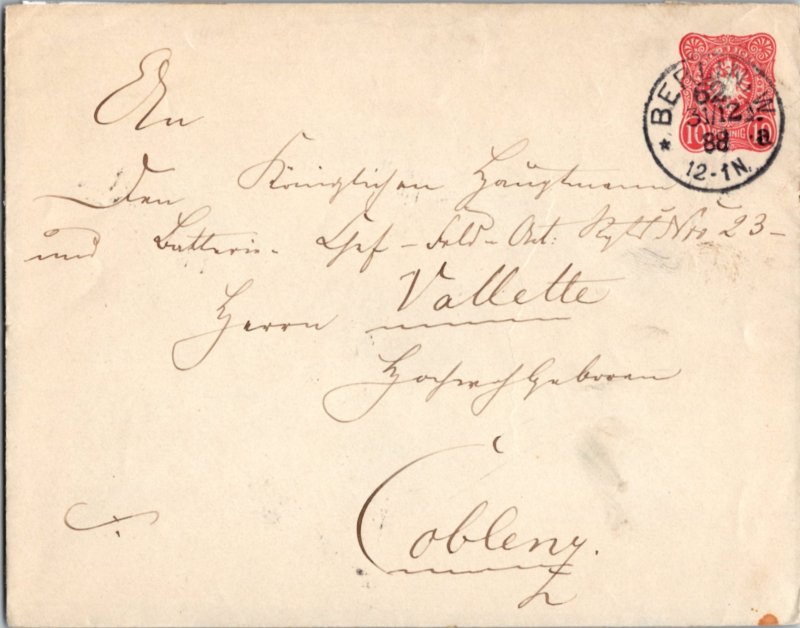 BERLIN, W.
62.
31/12 3.
88 .a
12-1 N.
10 10
An
den Königlichen Hauptmann
und Batterie-Chef-Feld-Art: Rgts No 23-
Herrn Vallette
Hochwohlgeboren
Coblenz.